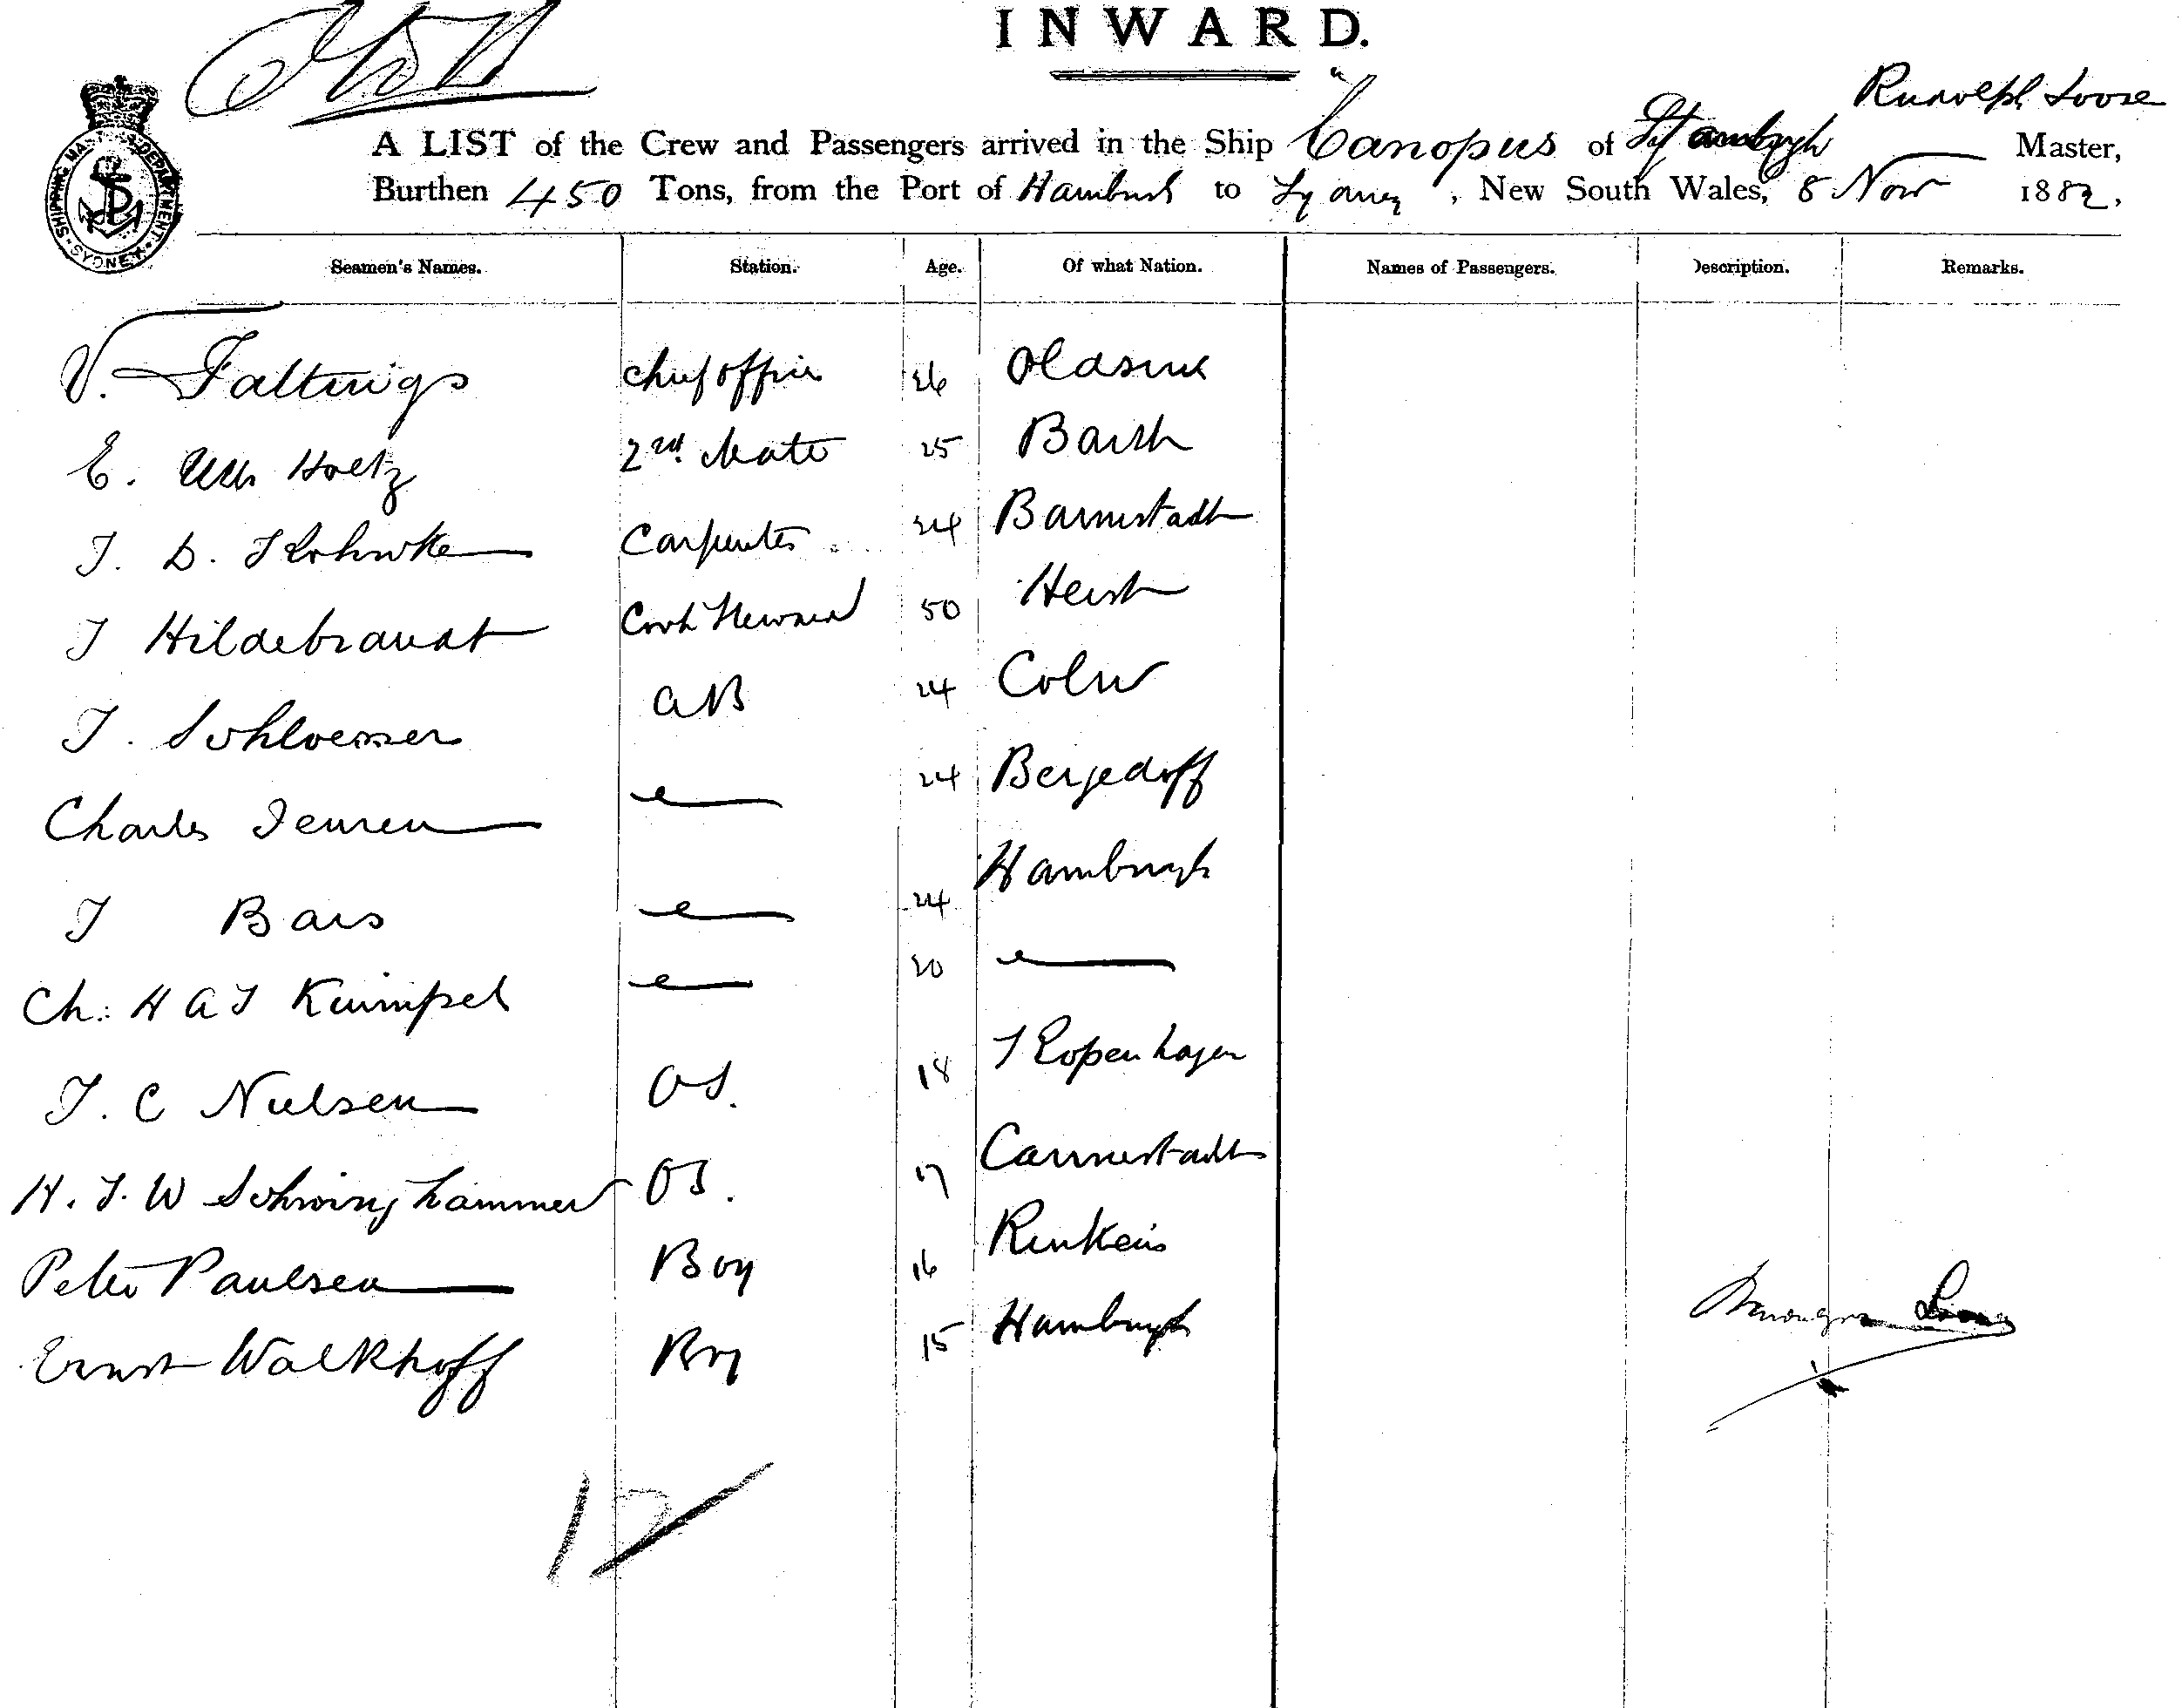 INWARD.
Rudolph Loose
A LIST of the Crew and Passengers arrived in the Ship "Canopus" of Hamburgh Master,
Burthen 450 Tons, from the Port of Hamburgh to Sydney, New South Wales, 8 Nov 1882.
SHIPPING MASTER'S DEPARTMENT SYDNEY
Seamen's Names. Station. Age. Of what Nation. Names of Passengers. Description. Remarks.
V. Faltings Chief Officer 26
E. Holtz 2nd Mate 25 Barth
J. D. Carpenter 24 Barmstadt
J Hildebrandt Cook Steward 50
J. Schloesser AB 24 Coln
Charles Jensen 24 Bergedorff
J Bars 24 Hamburgh
Ch. H A J Kumpel 20
J. C Nielsen OS. 18 Kopenhagen
H. J. W Schwinghammer OS. 17 Cannstadt
Peter Paulsen Boy 16
Ernst Walkhoff Boy 15 Hamburgh
12